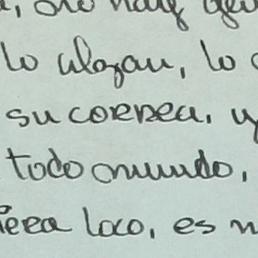 no hay
lo alagan, lo
su correa, y
todo mundo,
loco, es